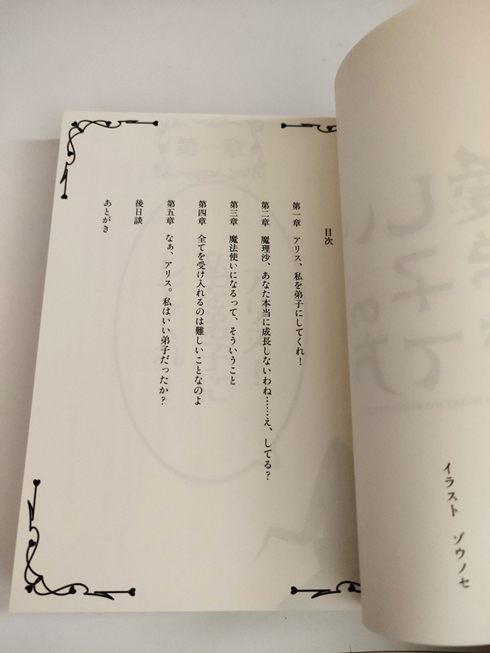 イラスト　ゾウノセ
目次
第一章　アリス、私を弟子にしてくれ！
第二章　魔理沙、あなた本当に成長しないわね……え、してる？
第三章　魔法使いになるって、そういうこと
第四章　全てを受け入れるのは難しいことなのよ
第五章　なぁ、アリス。私はいい弟子だったか？
後日談
あとがき